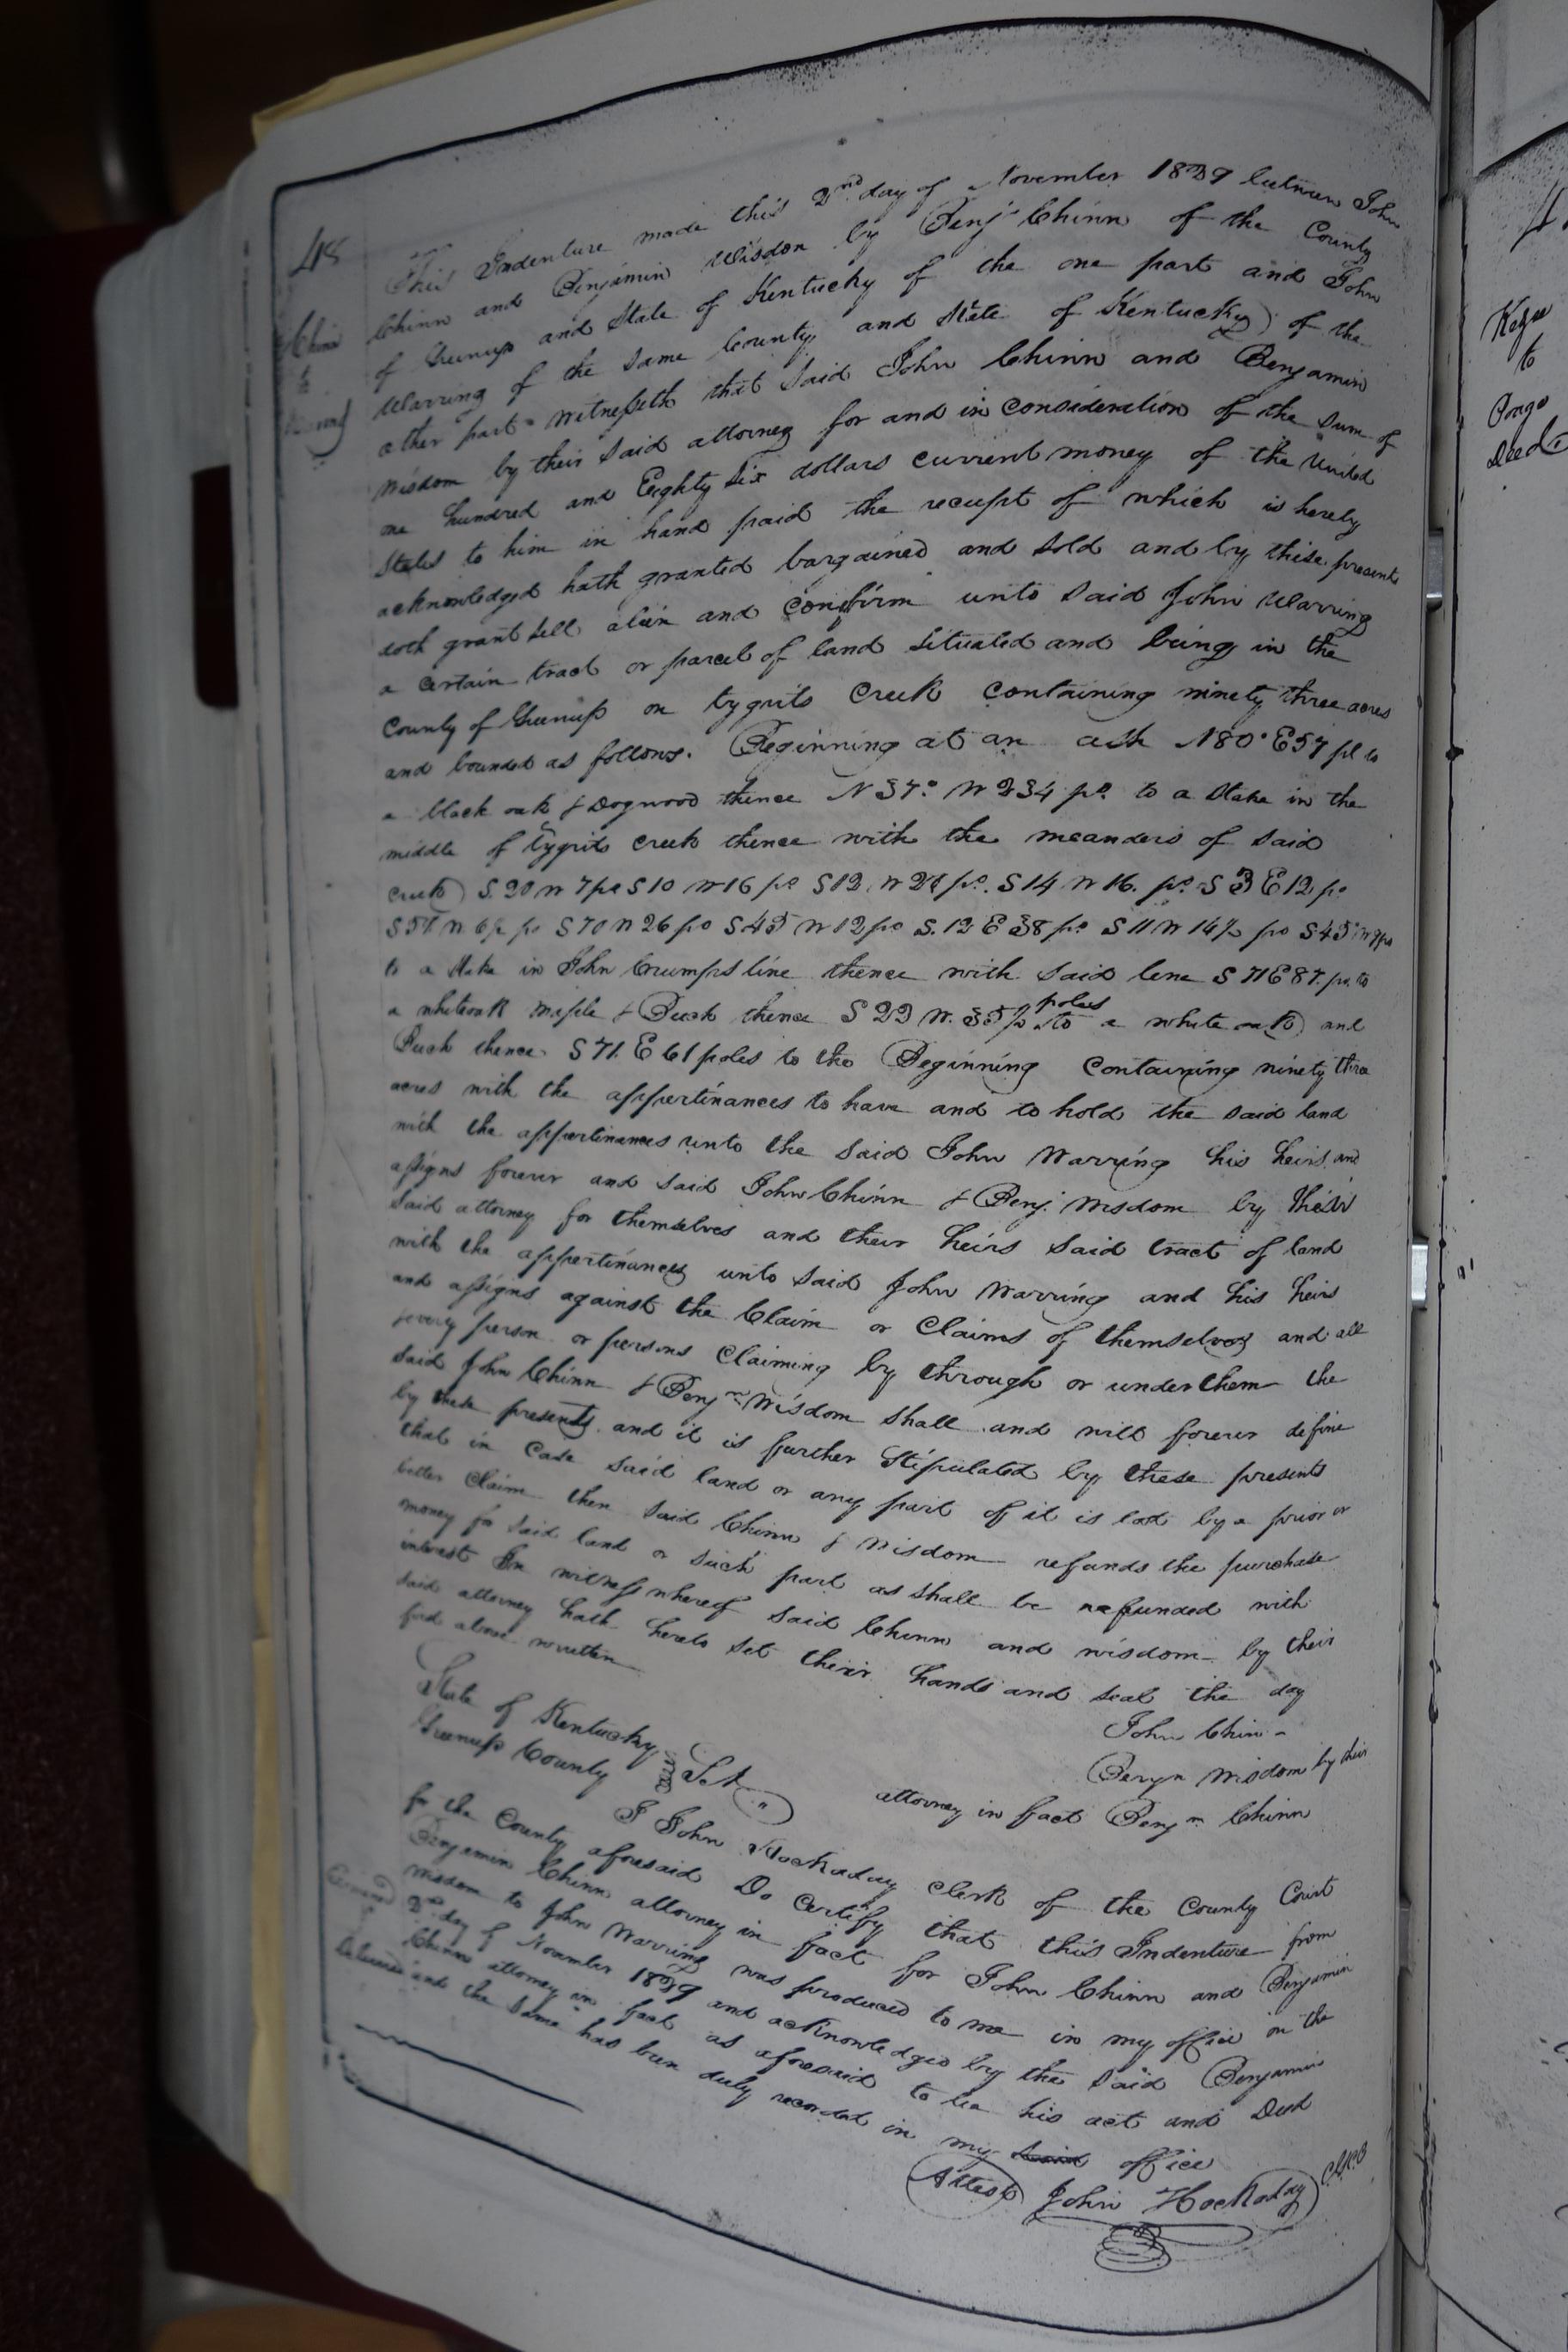 48
This Indenture made this 2nd day of November 1839 between John
Chinn and Benjamin Wisdom by Benj Chinn of the County
of Greenup and State of Kentucky of the one part and John
Warring of the same County and State of Kentucky of the
other part Witnesseth that said John Chinn and Benjamin
Wisdom by their said attorney for and in consideration of the sum of
one hundred and Eighty six dollars current money of the United
States to him in hand paid the receipt of which is hereby
acknowledged hath granted bargained and sold and by these present
doth grant sell alien and confirm unto said John Warring
a certain tract or parcel of land situated and being in the
County of Greenup on tygrits creek containing ninety three acres
and bounded as follows. Beginning at an ash N80° E57 pl to
a black oak & Dogwood thence N 37° W 234 po to a stake in the
middle of tygrits creek thence with the meanders of said
creek S. 20 W 7 po S 10 W 16 po S 12 W 28 po. S 14 W 16. po S 3 E 12 po
S 57 W 6½ po S 70 W 26 po S 45 W 12 po S. 12 E 38 po S 11 W 14½ po S 45 W 9 po
to a stake in John Crumps line thence with said line S 71 E 87. po. to
a whiteoak maple & Buck thence S 22 W. 35½ poles to a white oak and
Buck thence S 71. E 61 poles to the Beginning containing ninety three
acres with the appertinances to have and to hold the said land
with the appertinances unto the said John Warring his heirs and
assigns forever and said John Chinn & Benj. Wisdom by their
said attorney for themselves and their heirs said tract of land
with the appertinances unto said John Warring and his heirs
and assigns against the Claim or Claims of themselves and all
& every person or persons Claiming by through or under them the
said John Chinn & Benjn Wisdom shall and will forever define
by these presents and it is further stipulated by these presents
that in case said land or any part of it is lost by a prior or
better claim then said Chinn & Wisdom refunds the purchase
money for said land or such part as shall be refunded with
interest In witness whereof said Chinn and wisdom by their
said attorney hath hereto set their hands and seal the day
first above written
John Chin
Benjn Wisdom by their
attorney in fact Benjn Chinn
State of Kentucky
Greenup County Sct
I John Hockaday clerk of the County Court
for the County aforesaid Do certify that this Indenture from
Benjamin Chinn attorney in fact for John Chinn and Benjamin
Wisdom to John Warring was produced to me in my office on the
2nd day of November 1839 and acknowledged by the said Benjamin
Chinn attorney in fact as aforesaid to be his act and Deed
and the same has been duly recorded in my said office
Attest John Hockaday
Chinn
to
Keysee
to
Deed